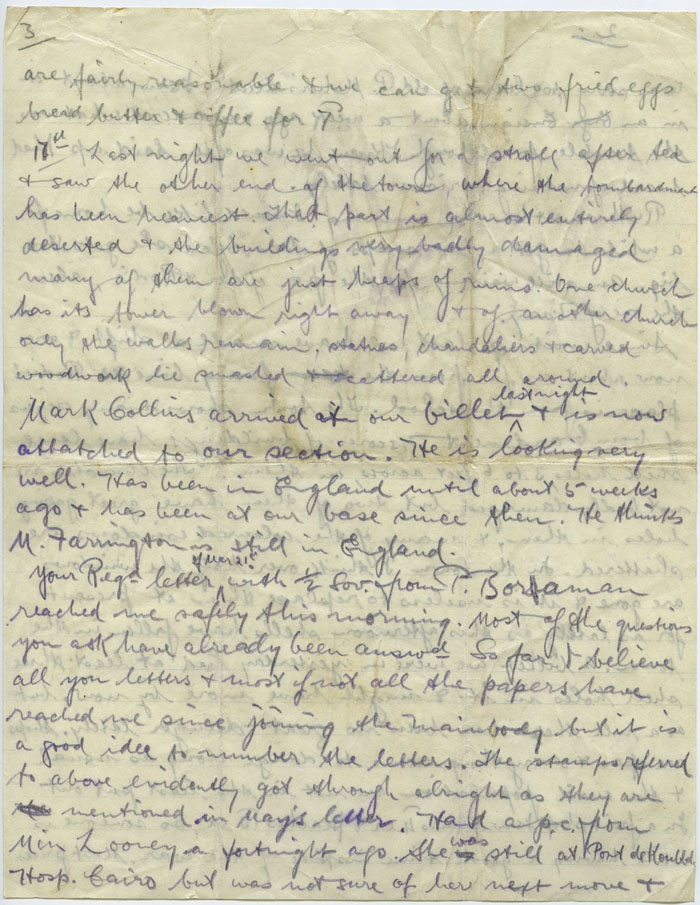 3
are fairly reasonable & we can get two fried eggs
bread butter & coffee for
17th Last night we went out for a stroll after tea
& saw the other end of the town, where the bombardment
has been heaviest. That part is almost entirely
deserted & the buildings very badly damaged
many of them are just heaps of ruins. One church
has its tower blown right away & of another church
only the walls remain. statues, chandeliers & carved
woodwork lie smashed & scattered all around.
Mark Collins arrived at our billet last night & is now
attatched to our section. He is looking very
well. Has been in England until about 5 weeks
ago & has been at our base since then. He thinks
M. Farrington is still in England.
Your Regd letter of Mar 21st with ½ Sov from T. Boreaman
reached me safely this morning. Most of the questions
you ask have already been answd So far I believe
all you letters & most if not all the papers have
reached me since joining the mainbody but it is
a good idee to number the letters. The stamps referred
to above evidently got through alright as they are
mentioned in May's letter. Had a p.c. from
Min Looney a fortnight ago. She was still at Port de Koubbeh
Hosp. Cairo but was not sure of her next move &